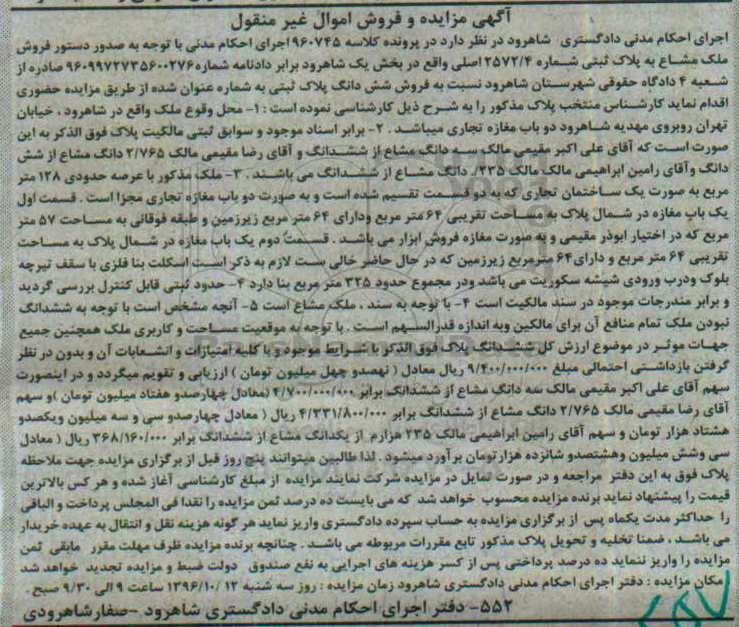 آگهی مزایده و فروش اموال غیر منقول
اجرای احکام مدنی دادگستری شاهرود در نظر دارد در پرونده کلاسه ۹۶۰۷۴۵ اجرای احکام مدنی با توجه به صدور دستور فروش
ملک مشاع به پلاک ثبتی شماره ۲۵۷۲/۴ اصلی واقع در بخش یک شاهرود برابر دادنامه شماره ۹۶۰۹۹۷۲۷۳۵۶۰۰۲۷۶ صادره از
شعبه ۴ دادگاه حقوقی شهرستان شاهرود نسبت به فروش شش دانگ پلاک ثبتی به شماره عنوان شده از طریق مزایده حضوری
اقدام نماید کارشناس منتخب پلاک مذکور را به شرح ذیل کارشناسی نموده است : ۱- محل وقوع ملک واقع در شاهرود ، خیابان
تهران روبروی مهدیه شاهرود دو باب مغازه تجاری میباشد . ۲- برابر اسناد موجود و سوابق ثبتی مالکیت پلاک فوق الذکر به این
صورت است که آقای علی اکبر مقیمی مالک سه دانگ مشاع از ششدانگ و آقای رضا مقیمی مالک ۲/۷۶۵ دانگ مشاع از شش
دانگ وآقای رامین ابراهیمی مالک مالک ۲۳۵/. دانگ مشاع از ششدانگ می باشند . ۳- ملک مذکور با عرصه حدودی ۱۲۸ متر
مربع به صورت یک ساختمان تجاری که به دو قسمت تقسیم شده است و به صورت دو باب مغازه تجاری مجزا است . قسمت اول
یک باب مغازه در شمال پلاک به مساحت تقریبی ۶۴ متر مربع ودارای ۶۴ متر مربع زیرزمین و طبقه فوقانی به مساحت ۵۷ متر
مربع که در اختیار ابوذر مقیمی و به صورت مغازه فروش ابزار می باشد . قسمت دوم یک باب مغازه در شمال پلاک به مساحت
تقریبی ۶۴ متر مربع و دارای ۶۴ مترمربع زیرزمین که در حال حاضر خالی ست لازم به ذکر است اسکلت بنا فلزی با سقف تیرچه
بلوک ودرب ورودی شیشه سکوریت می باشد ودر مجموع حدود ۳۲۵ متر مربع بنا دارد ۴- حدود ثبتی قابل کنترل بررسی گردید
و برابر مندرجات موجود در سند مالکیت است ۴- با توجه به سند ، ملک مشاع است ۵- آنچه مشخص است با توجه به ششدانگ
نبودن ملک تمام منافع آن برای مالکین وبه اندازه قدرالسهم است . با توجه به موقعیت مساحت و کاربری ملک همچنین جمیع
جهات موثر در موضوع ارزش کل ششدانگ پلاک فوق الذکر با شرایط موجود و با کلیه امتیازات و انشعابات آن و بدون در نظر
گرفتن بازداشتی احتمالی مبلغ ۹/۴۰۰/۰۰۰/۰۰۰ ریال معادل ( نهصدو چهل میلیون تومان ) ارزیابی و تقویم میگردد و در اینصورت
سهم آقای علی اکبر مقیمی مالک سه دانگ مشاع از ششدانگ برابر ۴/۷۰۰/۰۰۰/۰۰۰ (معادل چهارصدو هفتاد میلیون تومان )و سهم
آقای رضا مقیمی مالک ۲/۷۶۵ دانگ مشاع از ششدانگ برابر ۴/۳۳۱/۸۰۰/۰۰۰ ریال ( معادل چهارصدو سی و سه میلیون ویکصدو
هشتاد هزار تومان و سهم آقای رامین ابراهیمی مالک ۲۳۵ هزارم از یکدانگ مشاع از ششدانگ برابر ۳۶۸/۱۶۰/۰۰۰ ریال ( معادل
سی وشش میلیون وهشتصدو شانزده هزار تومان برآورد میشود . لذا طالبین میتوانند پنج روز قبل از برگزاری مزایده جهت ملاحظه
پلاک فوق به این دفتر مراجعه و در صورت تمایل در مزایده شرکت نمایند مزایده از مبلغ کارشناسی آغاز شده و هر کس بالاترین
قیمت را پیشنهاد نماید برنده مزایده محسوب خواهد شد که می بایست ده درصد ثمن مزایده را نقدا فی المجلس پرداخت و الباقی
را حداکثر مدت یکماه پس از برگزاری مزایده به حساب سپرده دادگستری واریز نماید هر گونه هزینه نقل و انتقال به عهده خریدار
می باشد ، ضمنا تخلیه و تحویل پلاک مذکور تابع مقررات مربوطه می باشد . چنانچه برنده مزایده ظرف مهلت مقرر مابقی ثمن
مزایده را واریز ننماید ده درصد پرداختی پس از کسر هزینه های اجرایی به نفع صندوق دولت ضبط و مزایده تجدید خواهد شد
مکان مزایده : دفتر اجرای احکام مدنی دادگستری شاهرود زمان مزایده : روز سه شنبه ۱۳۹۶/۱۰/۱۲ ساعت ۹ الی ۹/۳۰ صبح .
۵۵۲- دفتر اجرای احکام مدنی دادگستری شاهرود -صفارشاهرودی